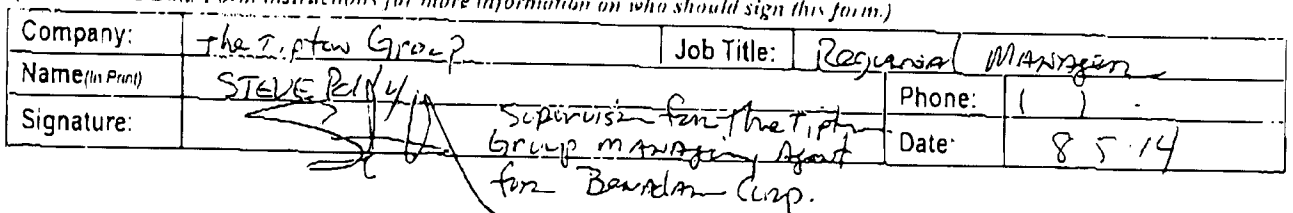 Form instructions for more information on who should sign this form.)
Company: The Tipton Group Job Title: Regional Manager
Name (In Print) STEVE Phone: ( )
Signature: Supervisor for The Tipton Date: 8 5 14
Group Managing Agent
for Corp.